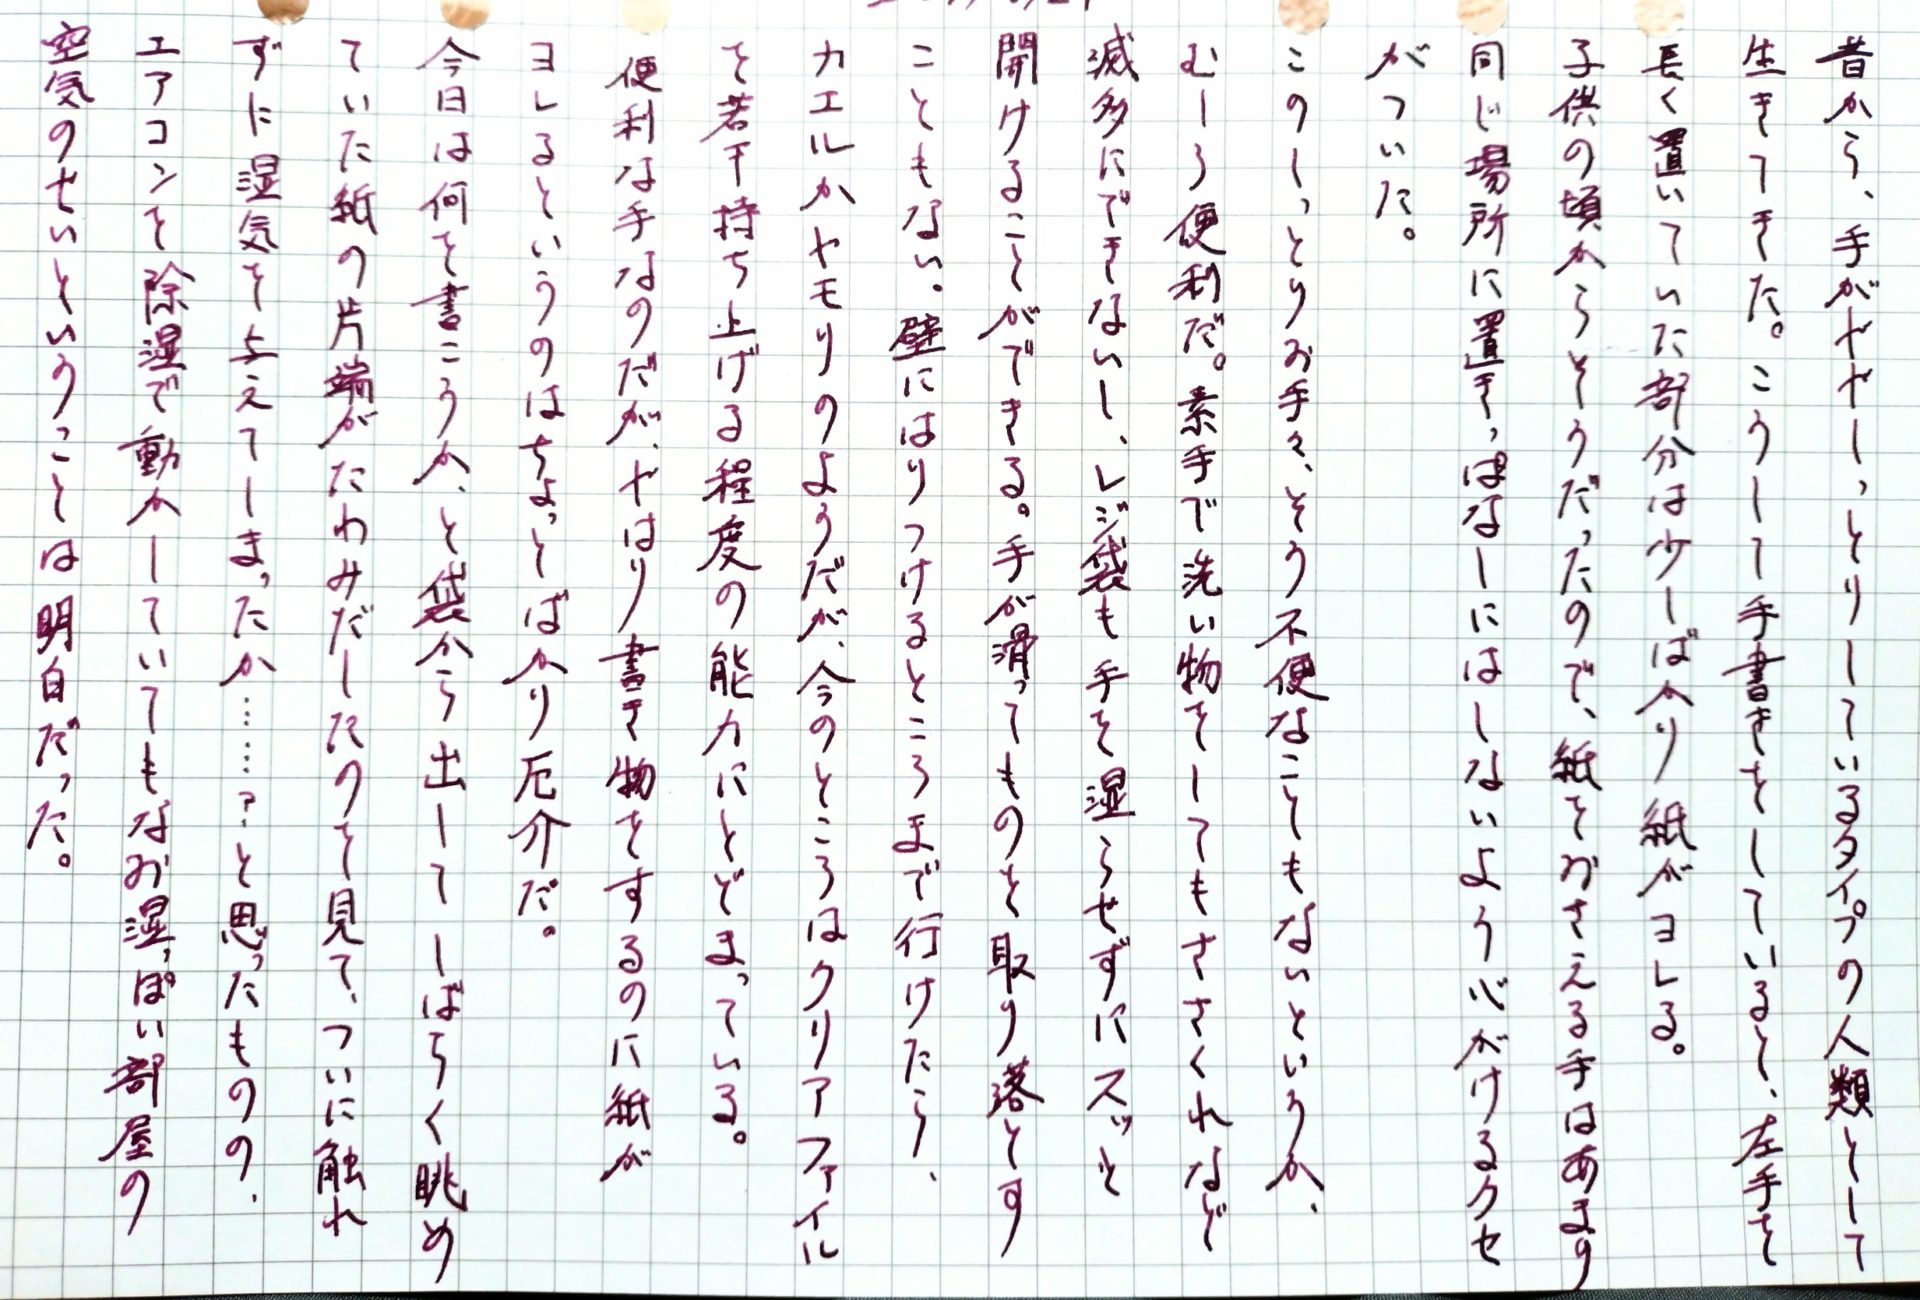 昔から、手がややしっとりしているタイプの人類として
生きてきた。こうして手書きをしていると、左手を
長く置いていた部分は少しばかり紙がヨレる。
子供の頃からそうだったので、紙をおさえる手はあまり
同じ場所に置きっぱなしにはしないよう心がけるクセ
がついた。
このしっとりお手々、そう不便なこともないというか、
むしろ便利だ。素手で洗い物をしてもささくれなど
滅多にできないし、レジ袋も手を湿らせずにスッと
開けることができる。手が滑ってものを取り落とす
こともない。壁にはりつけるところまで行けたら、
カエルかヤモリのようだが、今のところはクリアファイル
を若干持ち上げる程度の能力にとどまっている。
便利な手なのだが、やはり書き物をするのに紙が
ヨレるというのはちょっとばかり厄介だ。
今日は何を書こうか、と袋から出してしばらく眺め
ていた紙の片端がたわみだしたのを見て、ついに触れ
ずに湿気を与えてしまったか……？と思ったものの、
エアコンを除湿で動かしていてもなお湿っぽい部屋の
空気のせいということは明白だった。